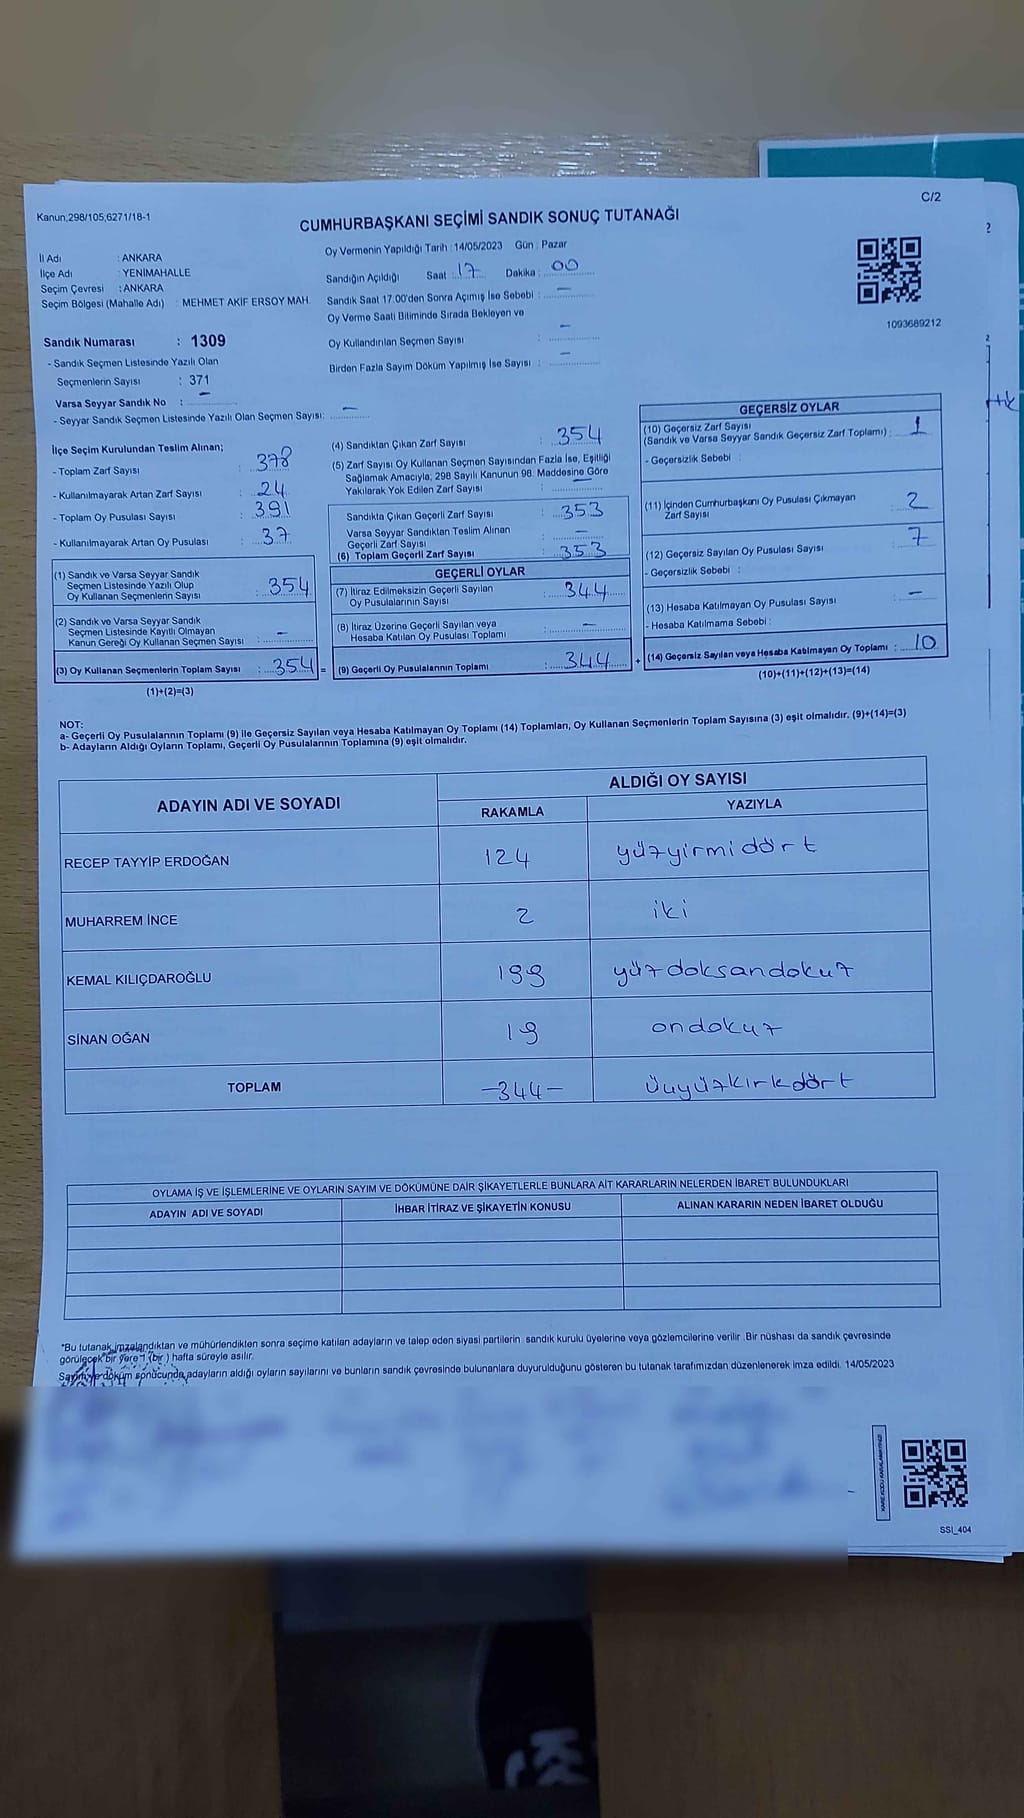 C/2
Kanun;298/105,6271/18-1
CUMHURBAŞKANI SEÇİMİ SANDIK SONUÇ TUTANAĞI
İl Adı : ANKARA
İlçe Adı : YENİMAHALLE
Seçim Çevresi : ANKARA
Seçim Bölgesi (Mahalle Adı) : MEHMET AKİF ERSOY MAH.
Oy Vermenin Yapıldığı Tarih : 14/05/2023 Gün : Pazar
Sandığın Açıldığı Saat : 17 Dakika : 00
Sandık Saat 17.00'den Sonra Açımış İse Sebebi : —
Oy Verme Saati Bitiminde Sırada Bekleyen ve
Oy Kullandırılan Seçmen Sayısı : —
Birden Fazla Sayım Döküm Yapılmış İse Sayısı : —
1093689212
Sandık Numarası : 1309
- Sandık Seçmen Listesinde Yazılı Olan
Seçmenlerin Sayısı : 371
Varsa Seyyar Sandık No : —
- Seyyar Sandık Seçmen Listesinde Yazılı Olan Seçmen Sayısı: —
İlçe Seçim Kurulundan Teslim Alınan;
- Toplam Zarf Sayısı : 378
- Kullanılmayarak Artan Zarf Sayısı : 24
- Toplam Oy Pusulası Sayısı : 391
- Kullanılmayarak Artan Oy Pusulası : 37
(1) Sandık ve Varsa Seyyar Sandık
Seçmen Listesinde Yazılı Olup
Oy Kullanan Seçmenlerin Sayısı : 354
(2) Sandık ve Varsa Seyyar Sandık
Seçmen Listesinde Kayıtlı Olmayan
Kanun Gereği Oy Kullanan Seçmen Sayısı : —
(3) Oy Kullanan Seçmenlerin Toplam Sayısı : 354 =
(1)+(2)=(3)
(4) Sandıktan Çıkan Zarf Sayısı : 354
(5) Zarf Sayısı Oy Kullanan Seçmen Sayısından Fazla İse, Eşitliği
Sağlamak Amacıyla; 298 Sayılı Kanunun 98. Maddesine Göre
Yakılarak Yok Edilen Zarf Sayısı : —
Sandıkta Çıkan Geçerli Zarf Sayısı : 353
Varsa Seyyar Sandıktan Teslim Alınan
Geçerli Zarf Sayısı : —
(6) Toplam Geçerli Zarf Sayısı : 353
GEÇERLİ OYLAR
(7) İtiraz Edilmeksizin Geçerli Sayılan
Oy Pusulalarının Sayısı : 344
(8) İtiraz Üzerine Geçerli Sayılan veya
Hesaba Katılan Oy Pusulası Toplamı : —
(9) Geçerli Oy Pusulalarının Toplamı : 344 +
GEÇERSİZ OYLAR
(10) Geçersiz Zarf Sayısı
(Sandık ve Varsa Seyyar Sandık Geçersiz Zarf Toplamı) : 1
- Geçersizlik Sebebi :
(11) İçinden Cumhurbaşkanı Oy Pusulası Çıkmayan
Zarf Sayısı : 2
(12) Geçersiz Sayılan Oy Pusulası Sayısı : 7
- Geçersizlik Sebebi :
(13) Hesaba Katılmayan Oy Pusulası Sayısı : —
- Hesaba Katılmama Sebebi :
(14) Geçersiz Sayılan veya Hesaba Katılmayan Oy Toplamı : 10
(10)+(11)+(12)+(13)=(14)
NOT:
a- Geçerli Oy Pusulalarının Toplamı (9) ile Geçersiz Sayılan veya Hesaba Katılmayan Oy Toplamı (14) Toplamları, Oy Kullanan Seçmenlerin Toplam Sayısına (3) eşit olmalıdır. (9)+(14)=(3)
b- Adayların Aldığı Oyların Toplamı, Geçerli Oy Pusulalarının Toplamına (9) eşit olmalıdır.
ADAYIN ADI VE SOYADI
ALDIĞI OY SAYISI
RAKAMLA YAZIYLA
RECEP TAYYİP ERDOĞAN 124 yüzyirmidört
MUHARREM İNCE 2 iki
KEMAL KILIÇDAROĞLU 199 yüzdoksandokuz
SİNAN OĞAN 19 ondokuz
TOPLAM -344- Üçyüzkırkdört
OYLAMA İŞ VE İŞLEMLERİNE VE OYLARIN SAYIM VE DÖKÜMÜNE DAİR ŞİKAYETLERLE BUNLARA AİT KARARLARIN NELERDEN İBARET BULUNDUKLARI
ADAYIN ADI VE SOYADI İHBAR İTİRAZ VE ŞİKAYETİN KONUSU ALINAN KARARIN NEDEN İBARET OLDUĞU
*Bu tutanak imzalandıktan ve mühürlendikten sonra seçime katılan adayların ve talep eden siyasi partilerin sandık kurulu üyelerine veya gözlemcilerine verilir. Bir nüshası da sandık çevresinde
görülecek bir yere 1 (bir) hafta süreyle asılır.
Sayım ve döküm sonucunda adayların aldığı oyların sayılarını ve bunların sandık çevresinde bulunanlara duyurulduğunu gösteren bu tutanak tarafımızdan düzenlenerek imza edildi. 14/05/2023
SSI_404